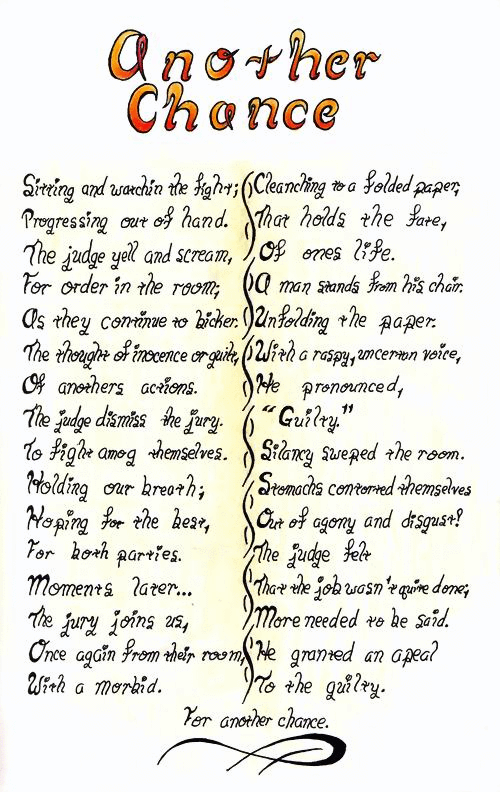 Another
Chance
Sitting and watchin the fight;
Progressing out of hand.
The judge yell and scream,
For order in the room;
As they continue to bicker.
The thought of inocence or guilt,
Of anothers actions.
The judge dismiss the jury.
To fight amog themselves.
Holding our breath;
Hoping for the best,
For both parties.
Moments later...
The jury joins us,
Once again from their room,
With a morbid.
Cleanching to a folded paper;
That holds the fate,
Of ones life.
A man stands from his chair.
Unfolding the paper.
With a raspy, uncerton voice,
He pronounced,
"Guilty."
Silancy sweped the room.
Stomachs contorted themselves
Out of agony and disgust!
The judge felt
That the job wasn't quite done;
More needed to be said.
He granted an apeal
To the guilty.
For another chance.